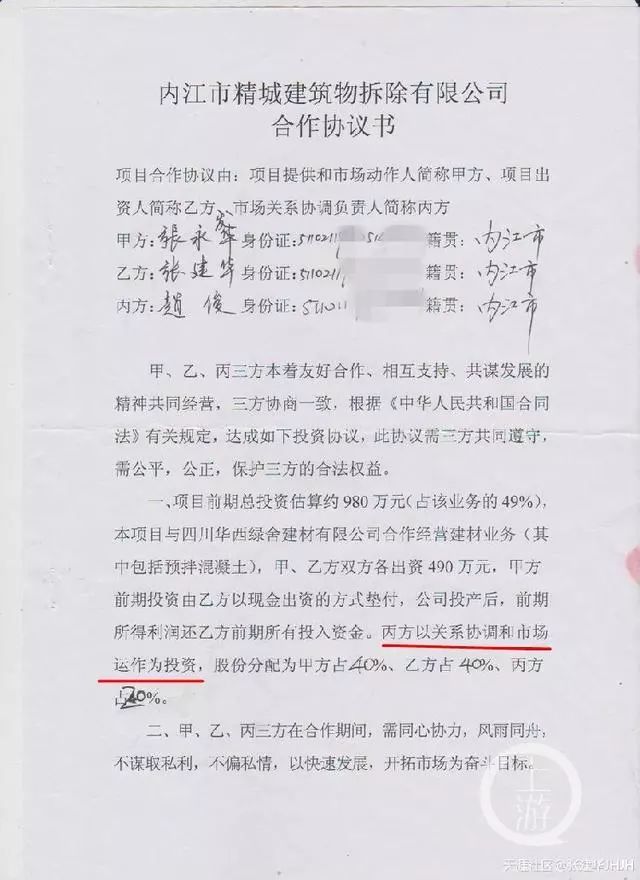 内江市精城建筑物拆除有限公司
合作协议书
项目合作协议由：项目提供和市场动作人简称甲方、项目出
资人简称乙方、市场关系协调负责人简称内方
甲方：張永发 身份证：5110211 籍贯：内江市
乙方：张建华 身份证：5110211 籍贯：内江市
内方：趙俊 身份证：511011 籍贯：内江市
甲、乙、丙三方本着友好合作、相互支持、共谋发展的
精神共同经营，三方协商一致，根据《中华人民共和国合同
法》有关规定，达成如下投资协议，此协议需三方共同遵守，
需公平，公正，保护三方的合法权益。
一、项目前期总投资估算约 980 万元（占该业务的 49%），
本项目与四川华西绿舍建材有限公司合作经营建材业务（其
中包括预拌混凝土），甲、乙方双方各出资 490 万元，甲方
前期投资由乙方以现金出资的方式垫付，公司投产后，前期
所得利润还乙方前期所有投入资金。丙方以关系协调和市场
运作为投资，股份分配为甲方占 40%、乙方占 40%、丙方
占20%。
二、甲、乙、丙三方在合作期间，需同心协力，风雨同舟，
不谋取私利，不偏私情，以快速发展，开拓市场为奋斗目标。
上游
天涯社区@张建华JHJH